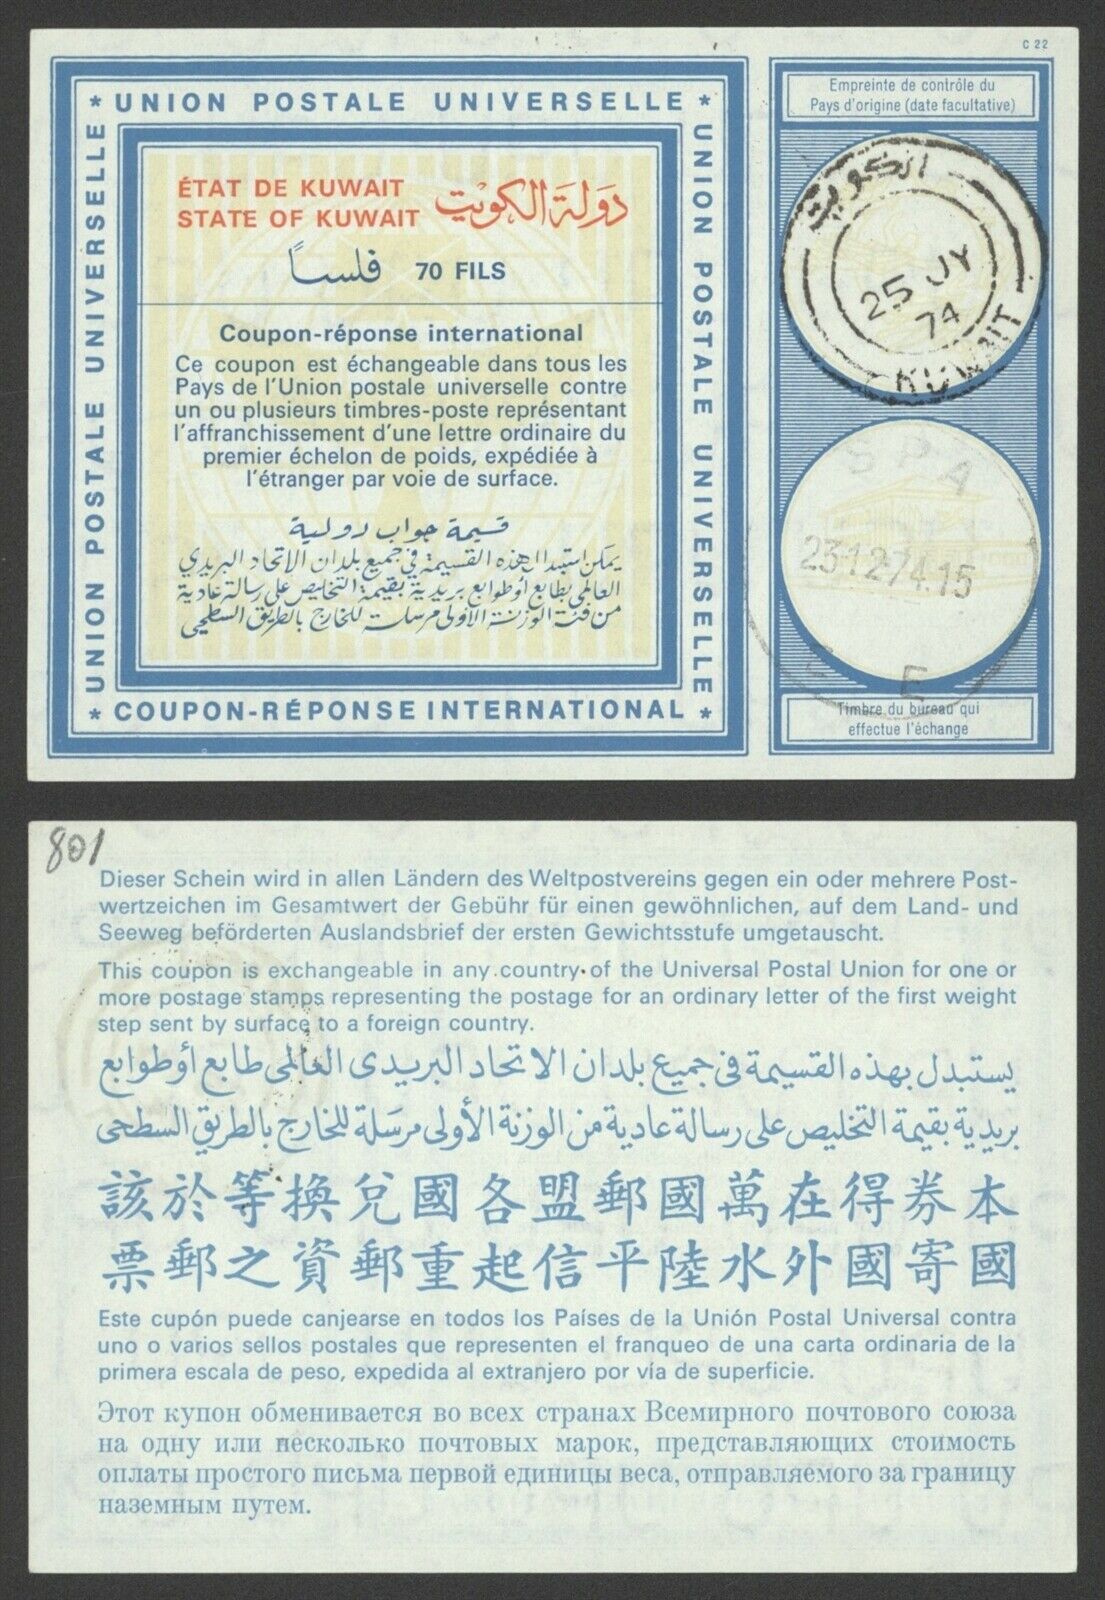 C 22
* UNION POSTALE UNIVERSELLE *
UNION POSTALE UNIVERSELLE
UNION POSTALE UNIVERSELLE
ÉTAT DE KUWAIT
STATE OF KUWAIT
دولة الكويت
70 FILS فلساً
Coupon-réponse international
Ce coupon est échangeable dans tous les
Pays de l'Union postale universelle contre
un ou plusieurs timbres-poste représentant
l'affranchissement d'une lettre ordinaire du
premier échelon de poids, expédiée à
l'étranger par voie de surface.
قسيمة جواب دولية
يمكن استبدال هذه القسيمة في جميع بلدان الاتحاد البريدي
العالمي بطابع أو طوابع بريدية بقيمة التخليص على رسالة عادية
من فئة الوزنة الأولى مرسلة للخارج بالطريق السطحي
* COUPON-RÉPONSE INTERNATIONAL *
Empreinte de contrôle du
Pays d'origine (date facultative)
الكويت
25 JY
74
KUWAIT
SPA
23-12-74.15
E
Timbre du bureau qui
effectue l'échange
801
Dieser Schein wird in allen Ländern des Weltpostvereins gegen ein oder mehrere Post-
wertzeichen im Gesamtwert der Gebühr für einen gewöhnlichen, auf dem Land- und
Seeweg beförderten Auslandsbrief der ersten Gewichtsstufe umgetauscht.
This coupon is exchangeable in any country of the Universal Postal Union for one or
more postage stamps representing the postage for an ordinary letter of the first weight
step sent by surface to a foreign country.
يستبدل بهذه القسيمة في جميع بلدان الاتحاد البريدى العالمى طابع أو طوابع
بريدية بقيمة التخليص على رسالة عادية من الوزنة الأولى مرسَلة للخارج بالطريق السطحى
該於等換兌國各盟郵國萬在得券本
票郵之資郵重起信平陸水外國寄國
Este cupón puede canjearse en todos los Países de la Unión Postal Universal contra
uno o varios sellos postales que representen el franqueo de una carta ordinaria de la
primera escala de peso, expedida al extranjero por vía de superficie.
Этот купон обменивается во всех странах Всемирного почтового союза
на одну или несколько почтовых марок, представляющих стоимость
оплаты простого письма первой единицы веса, отправляемого за границу
наземным путем.